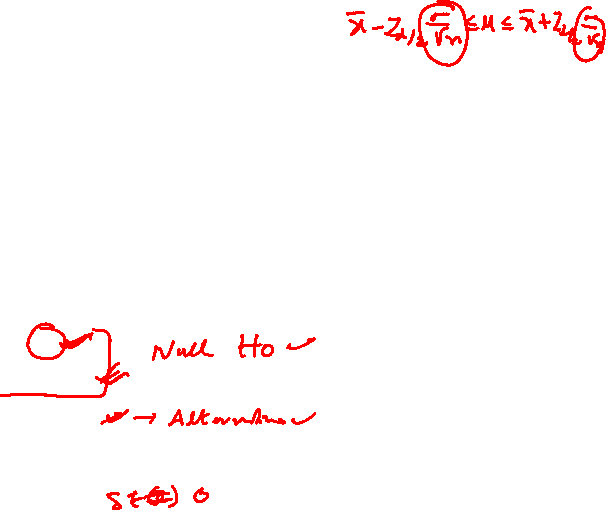 x̄ - Zα/2 σ/√n ≤ μ ≤ x̄ + Zα/2 σ/√n
Null Ho ✓
→ Alternative ✓